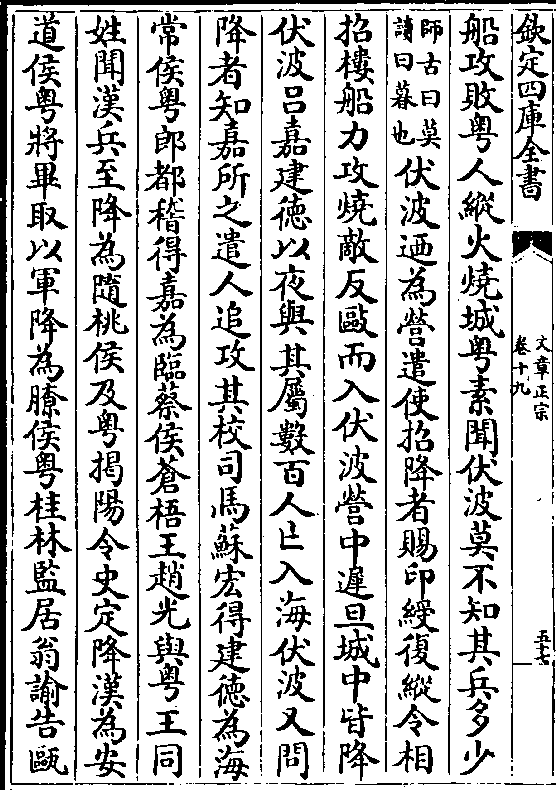 欽定四庫全書
文章正宗
卷十九
五十七
船攻敗粤人縱火燒城粤素聞伏波莫不知其兵多少
師古曰莫
讀曰暮也
伏波迺為營遣使招降者賜印綬復縱令相
招樓船力攻燒敵反敺而入伏波營中遲旦城中皆降
伏波吕嘉建德以夜與其屬數百人亡入海伏波又問
降者知嘉所之遣人追攻其校司馬蘇宏得建德為海
常侯粤郎都稽得嘉為臨蔡侯蒼梧王趙光與粤王同
姓聞漢兵至降為隨桃侯及粤揭陽令史定降漢為安
道侯粤將畢取以軍降為膫侯粤桂林監居翁諭告甌